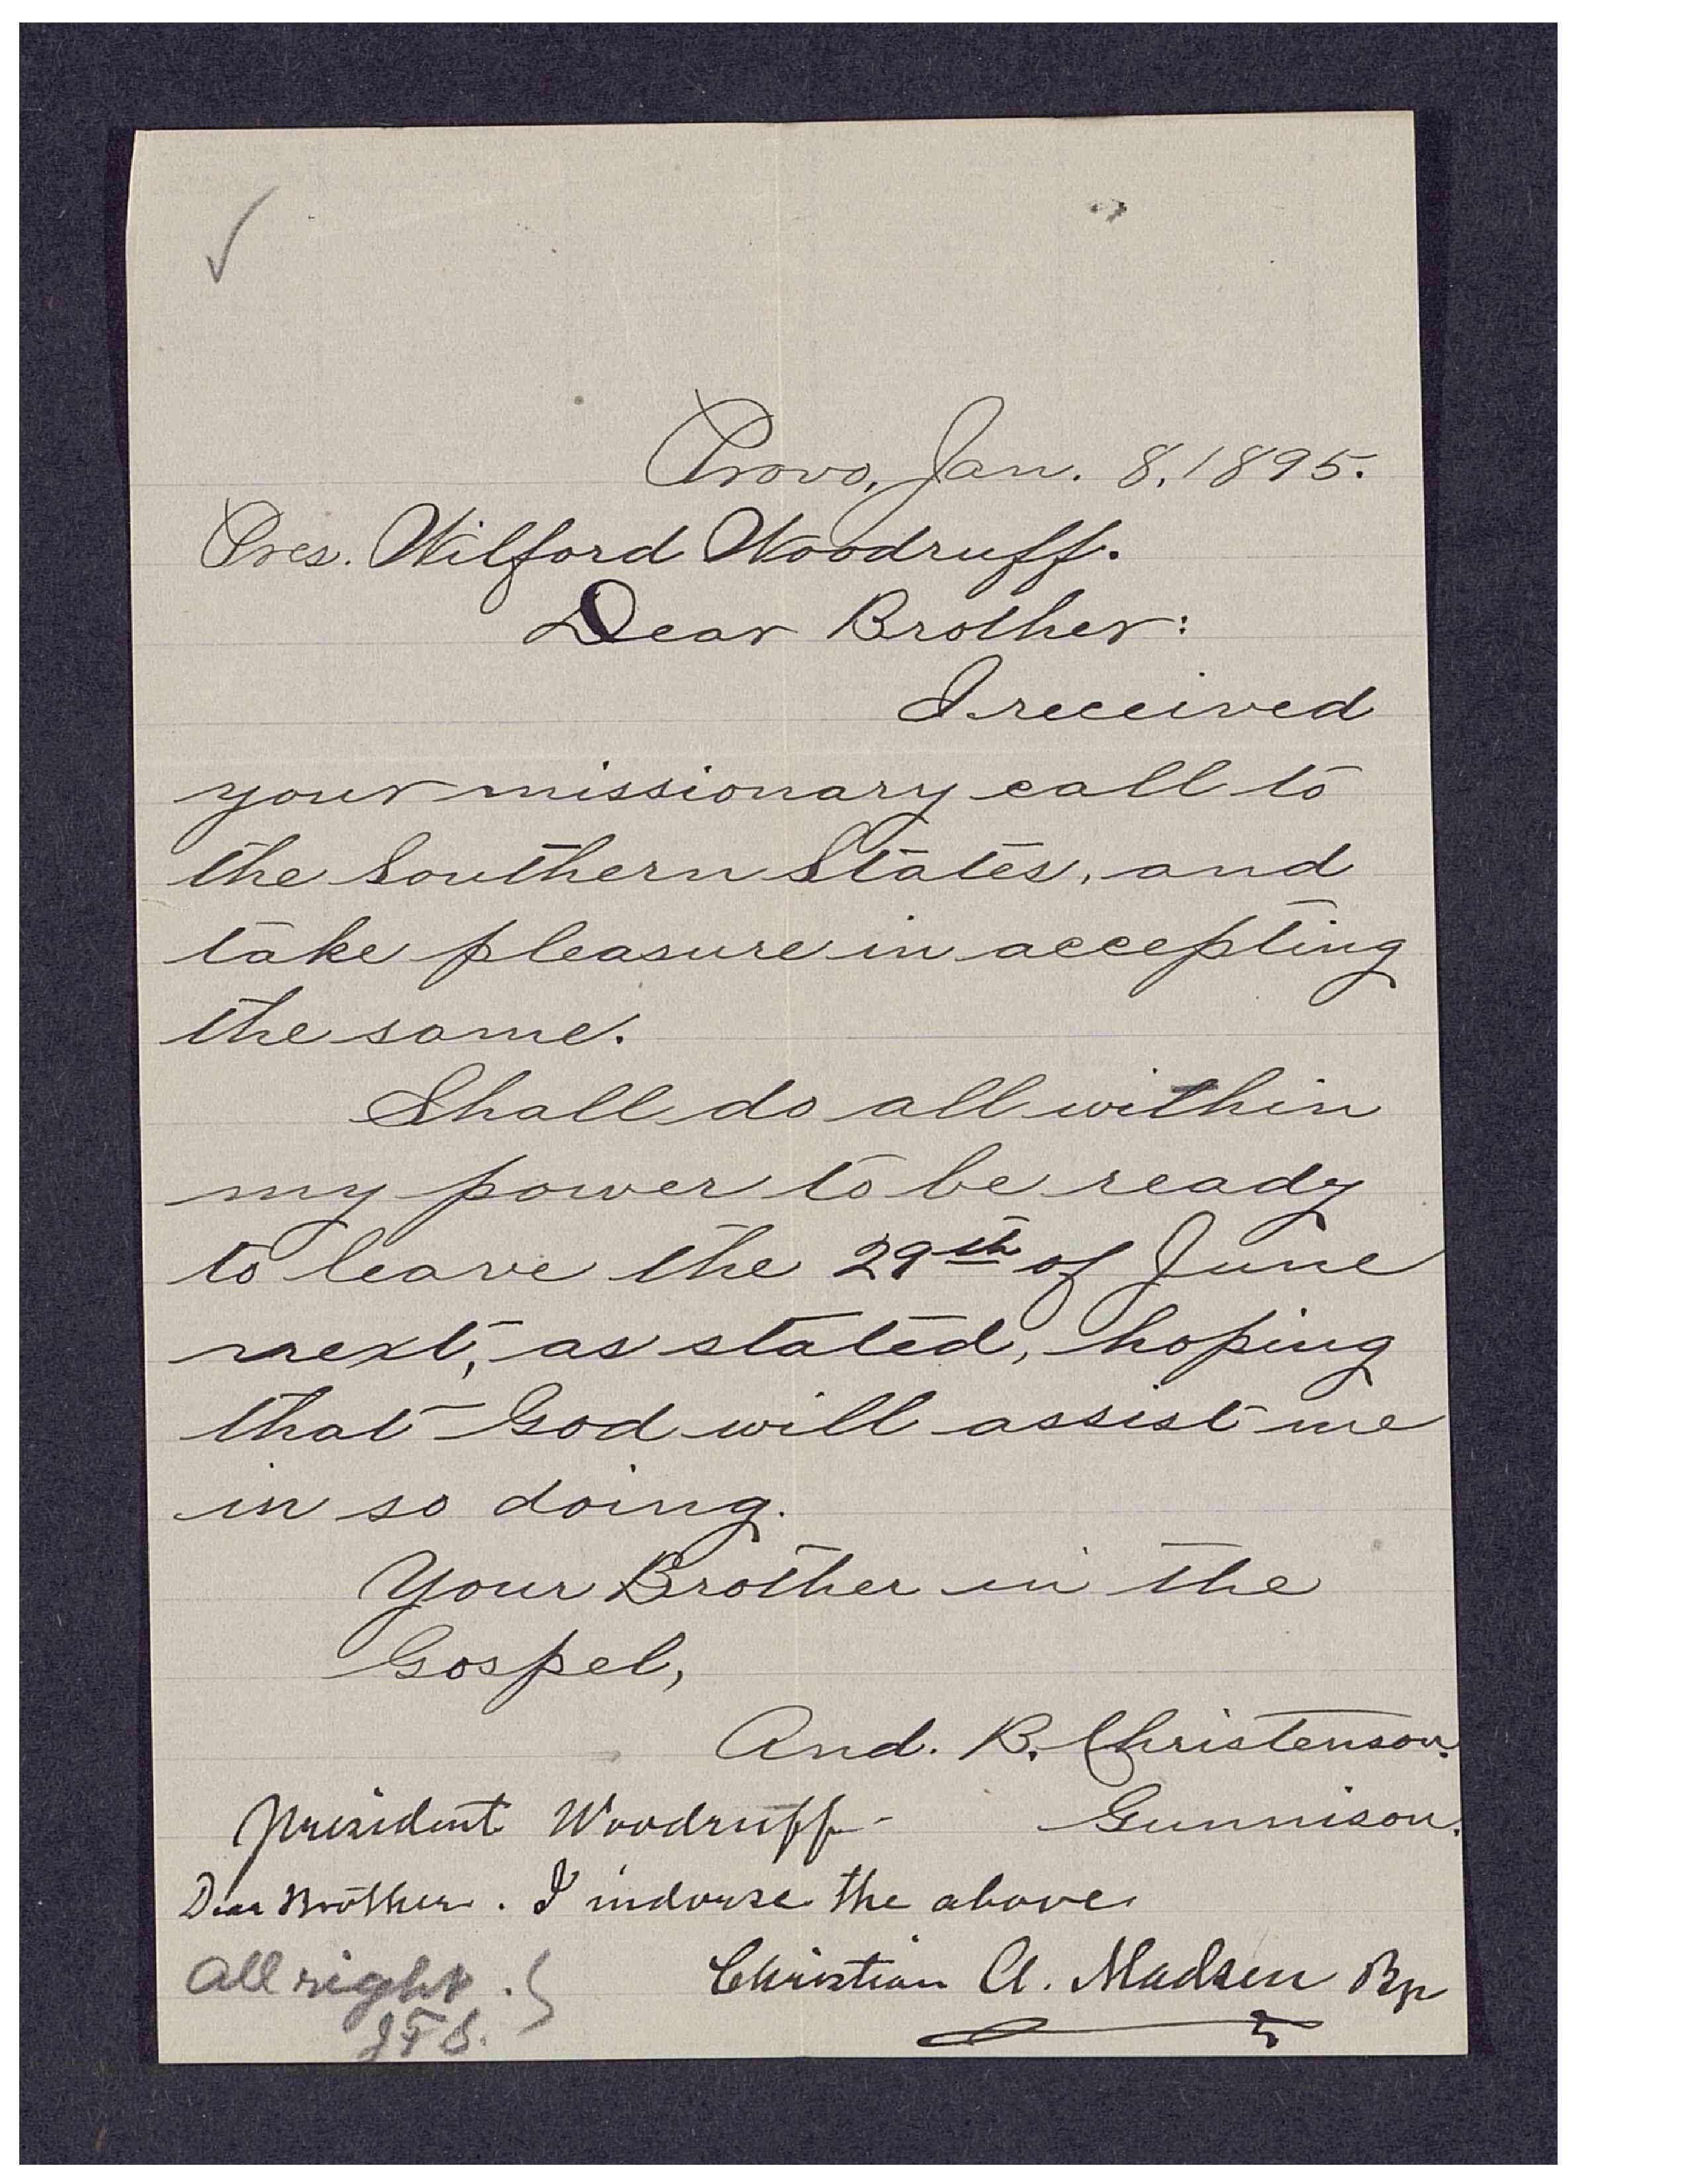 Provo, Jan. 8, 1895.
Pres. Wilford Woodruff.
Dear Brother:
I received
your missionary call to
the Southern States, and
take pleasure in accepting
the same.
Shall do all within
my power to be ready
to leave the 29th of June
next, as stated, hoping
that God will assist me
in so doing.
Your Brother in the
Gospel,
And. B. Christenson.
Gunnison.
President Woodruff-
Dear Brother. I indorse the above
Christian A. Madsen Bp
All right.
JFS.